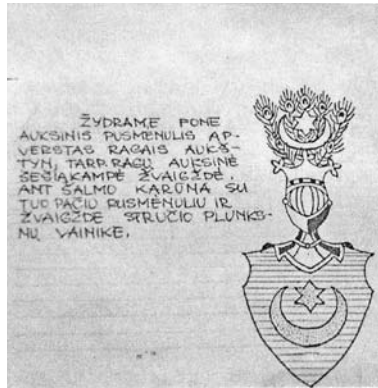 ŽYDRAME PONE
AUKSINIS PUSMĖNULIS AP-
VERSTAS RAGAIS AUKŠ-
TYN, TARP RAGŲ AUKSINĖ
ŠEŠIAKAMPĖ ŽVAIGŽDĖ.
ANT ŠALMO KARŪNA SU
TUO PAČIU PUSMĖNULIU IR
ŽVAIGŽDE STRUČIO PLUNKS-
NŲ VAINIKE.